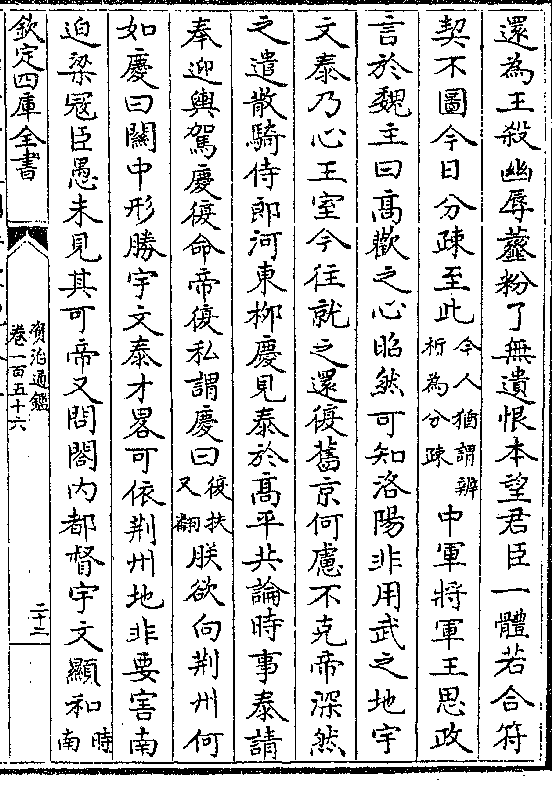 還為王殺幽辱虀粉了無遺恨本望君臣一體若合符
契不圖今日分疎至此今人猶謂辨析為分疎中軍將軍王思政
言於魏主曰高歡之心昭然可知洛陽非用武之地宇
文泰乃心王室今往就之還復舊京何慮不克帝深然
之遣散騎侍郎河東柳慶見泰於高平共論時事泰請
奉迎輿駕慶復命帝復私謂慶曰復扶又翻朕欲向荆州何
如慶曰關中形勝宇文泰才畧可依荆州地非要害南
迫梁寇臣愚未見其可帝又問閤内都督宇文顯和時南
欽定四庫全書
資治通鑑
卷一百五十六
二十二